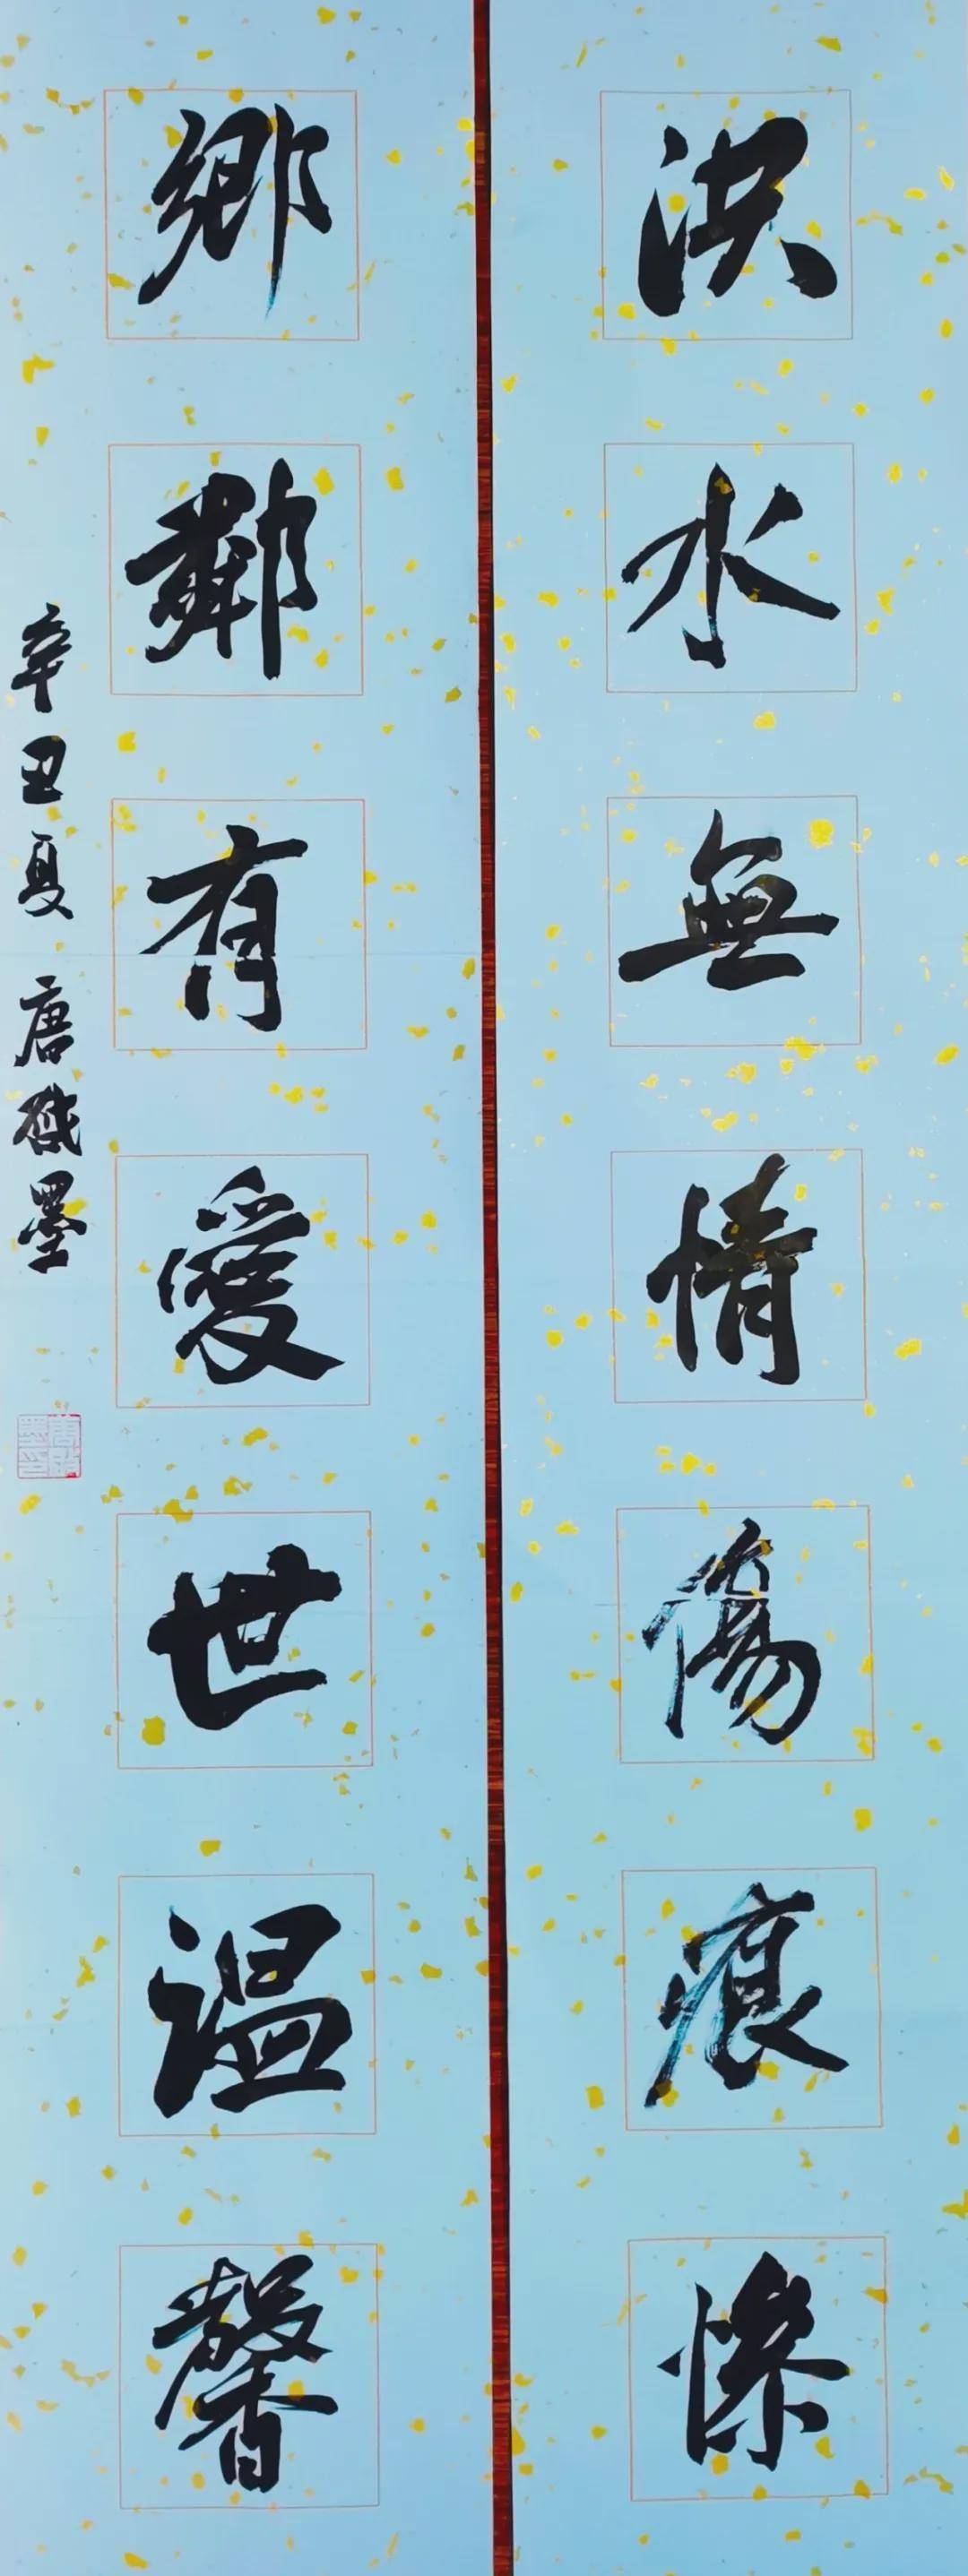 洪水無情傷痕慘
鄉鄰有愛世溫馨
辛丑夏 唐 墨